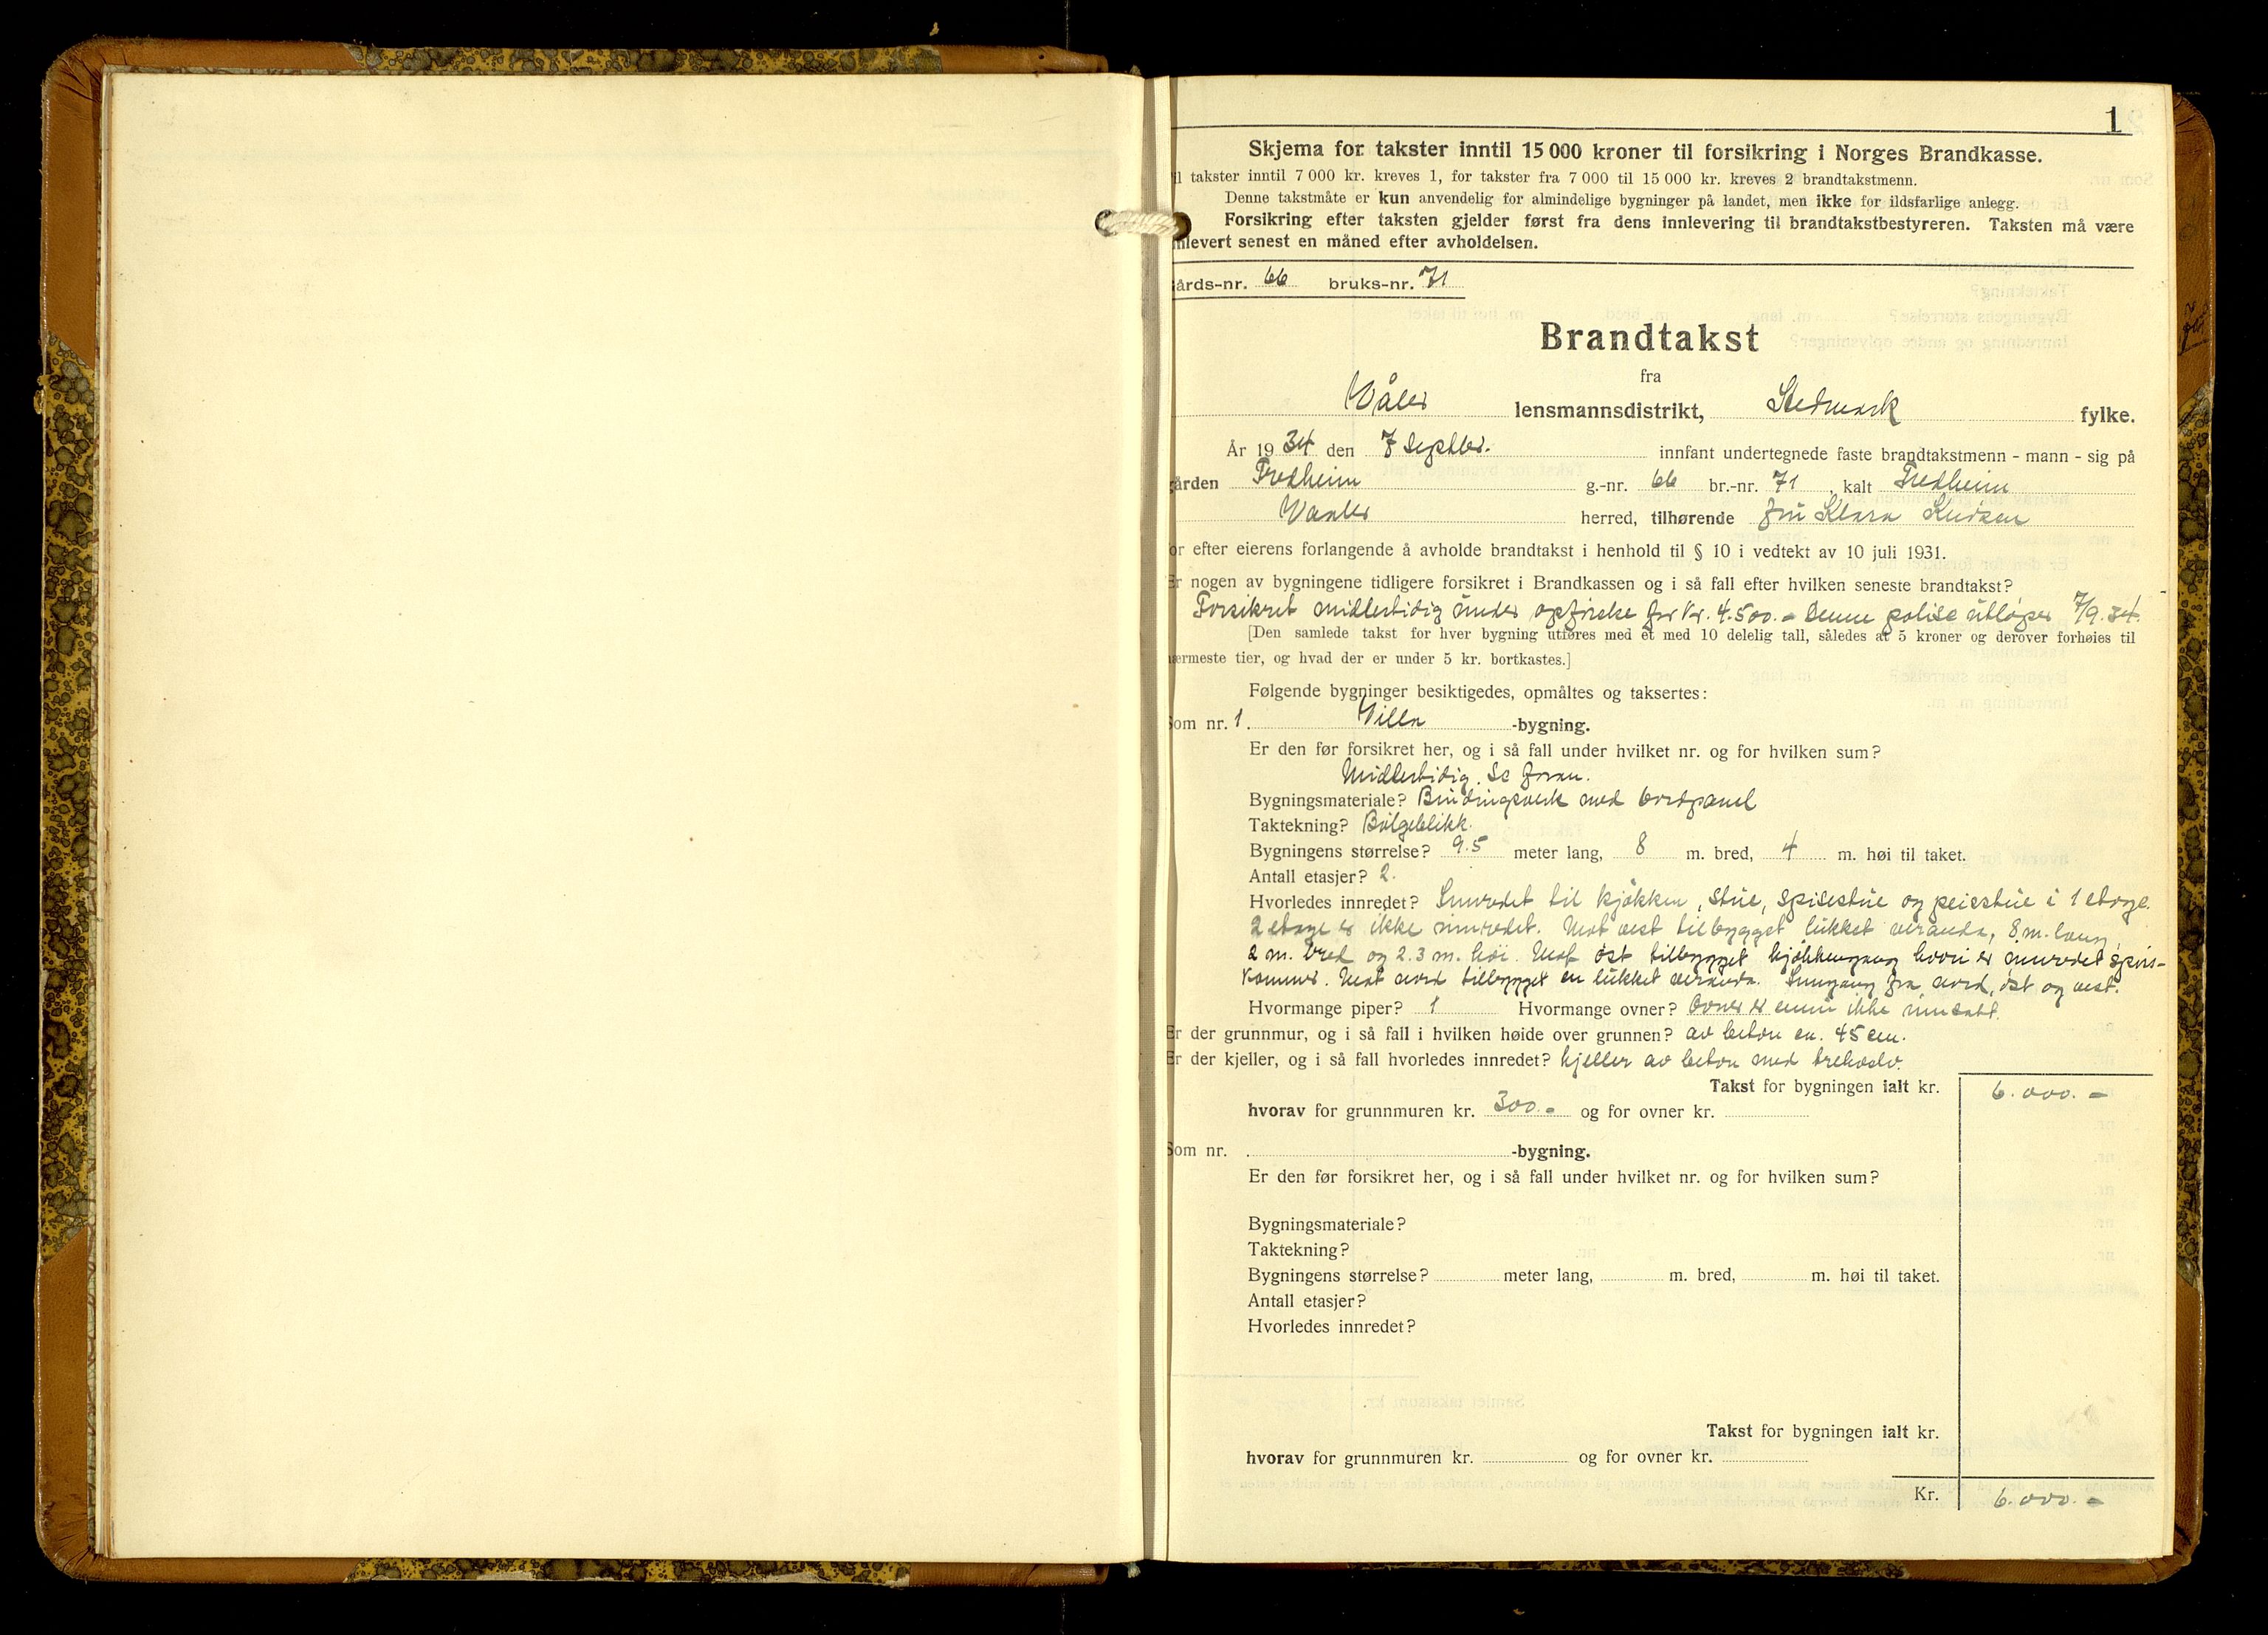 1
Skjema for takster inntil 15 000 kroner til forsikring i Norges Brandkasse.
l takster inntil 7 000 kr. kreves 1, for takster fra 7 000 til 15 000 kr. kreves 2 brandtakstmenn.
Denne takstmåte er kun anvendelig for almindelige bygninger på landet, men ikke for ildsfarlige anlegg.
Forsikring efter taksten gjelder først fra dens innlevering til brandtakstbestyreren. Taksten må være
nlevert senest en måned efter avholdelsen.
årds-nr. 66 bruks-nr. 71
Brandtakst
fra
Våler lensmannsdistrikt, Hedmark fylke.
År 1934 den 7 Septbr. innfant undertegnede faste brandtakstmenn - mann - sig på
gården Fredheim g.-nr. 66 br.-nr. 71, kalt Fredheim
Vaaler herred, tilhørende fru Klara Knudsen
or efter eierens forlangende å avholde brandtakst i henhold til § 10 i vedtekt av 10 juli 1931.
Er nogen av bygningene tidligere forsikret i Brandkassen og i så fall efter hvilken seneste brandtakst?
Forsikret midlertidig under opførelse for kr. 4.500.- Denne polise utløper 7/9.34.
[Den samlede takst for hver bygning utføres med et med 10 delelig tall, således at 5 kroner og derover forhøies til
ærmeste tier, og hvad der er under 5 kr. bortkastes.]
Følgende bygninger besiktigedes, opmåltes og taksertes:
Som nr. 1. Villa -bygning.
Er den før forsikret her, og i så fall under hvilket nr. og for hvilken sum?
Midlertidig. Se foran.
Bygningsmateriale? Bindingsverk med bordpanel
Taktekning? Bølgeblikk.
Bygningens størrelse? 9.5 meter lang, 8 m. bred, 4 m. høi til taket.
Antall etasjer? 2.
Hvorledes innredet? Innredet til kjøkken, stue, spisestue og peisstue i 1 etage.
2 etage er ikke innredet. Mot vest tilbygget lukket veranda, 8 m. lang,
2 m. bred og 2.3 m. høi. Mot øst tilbygget kjøkkengang hvori er innredet spis-
kammer. Mot nord tilbygget en lukket veranda. Inngang fra nord, øst og vest.
Hvormange piper? 1 Hvormange ovner? Ovner er ennu ikke innsatt.
Er der grunnmur, og i så fall i hvilken høide over grunnen? av beton ca. 45 cm.
Er der kjeller, og i så fall hvorledes innredet? kjeller av beton med trehvelv.
Takst for bygningen ialt kr. 6.000.-
hvorav for grunnmuren kr. 300.- og for ovner kr.
Som nr. . -bygning.
Er den før forsikret her, og i så fall under hvilket nr. og for hvilken sum?
Bygningsmateriale?
Taktekning?
Bygningens størrelse? meter lang, m. bred, m. høi til taket.
Antall etasjer?
Hvorledes innredet?
Takst for bygningen ialt kr.
hvorav for grunnmuren kr. og for ovner kr.
Kr. 6.000.-